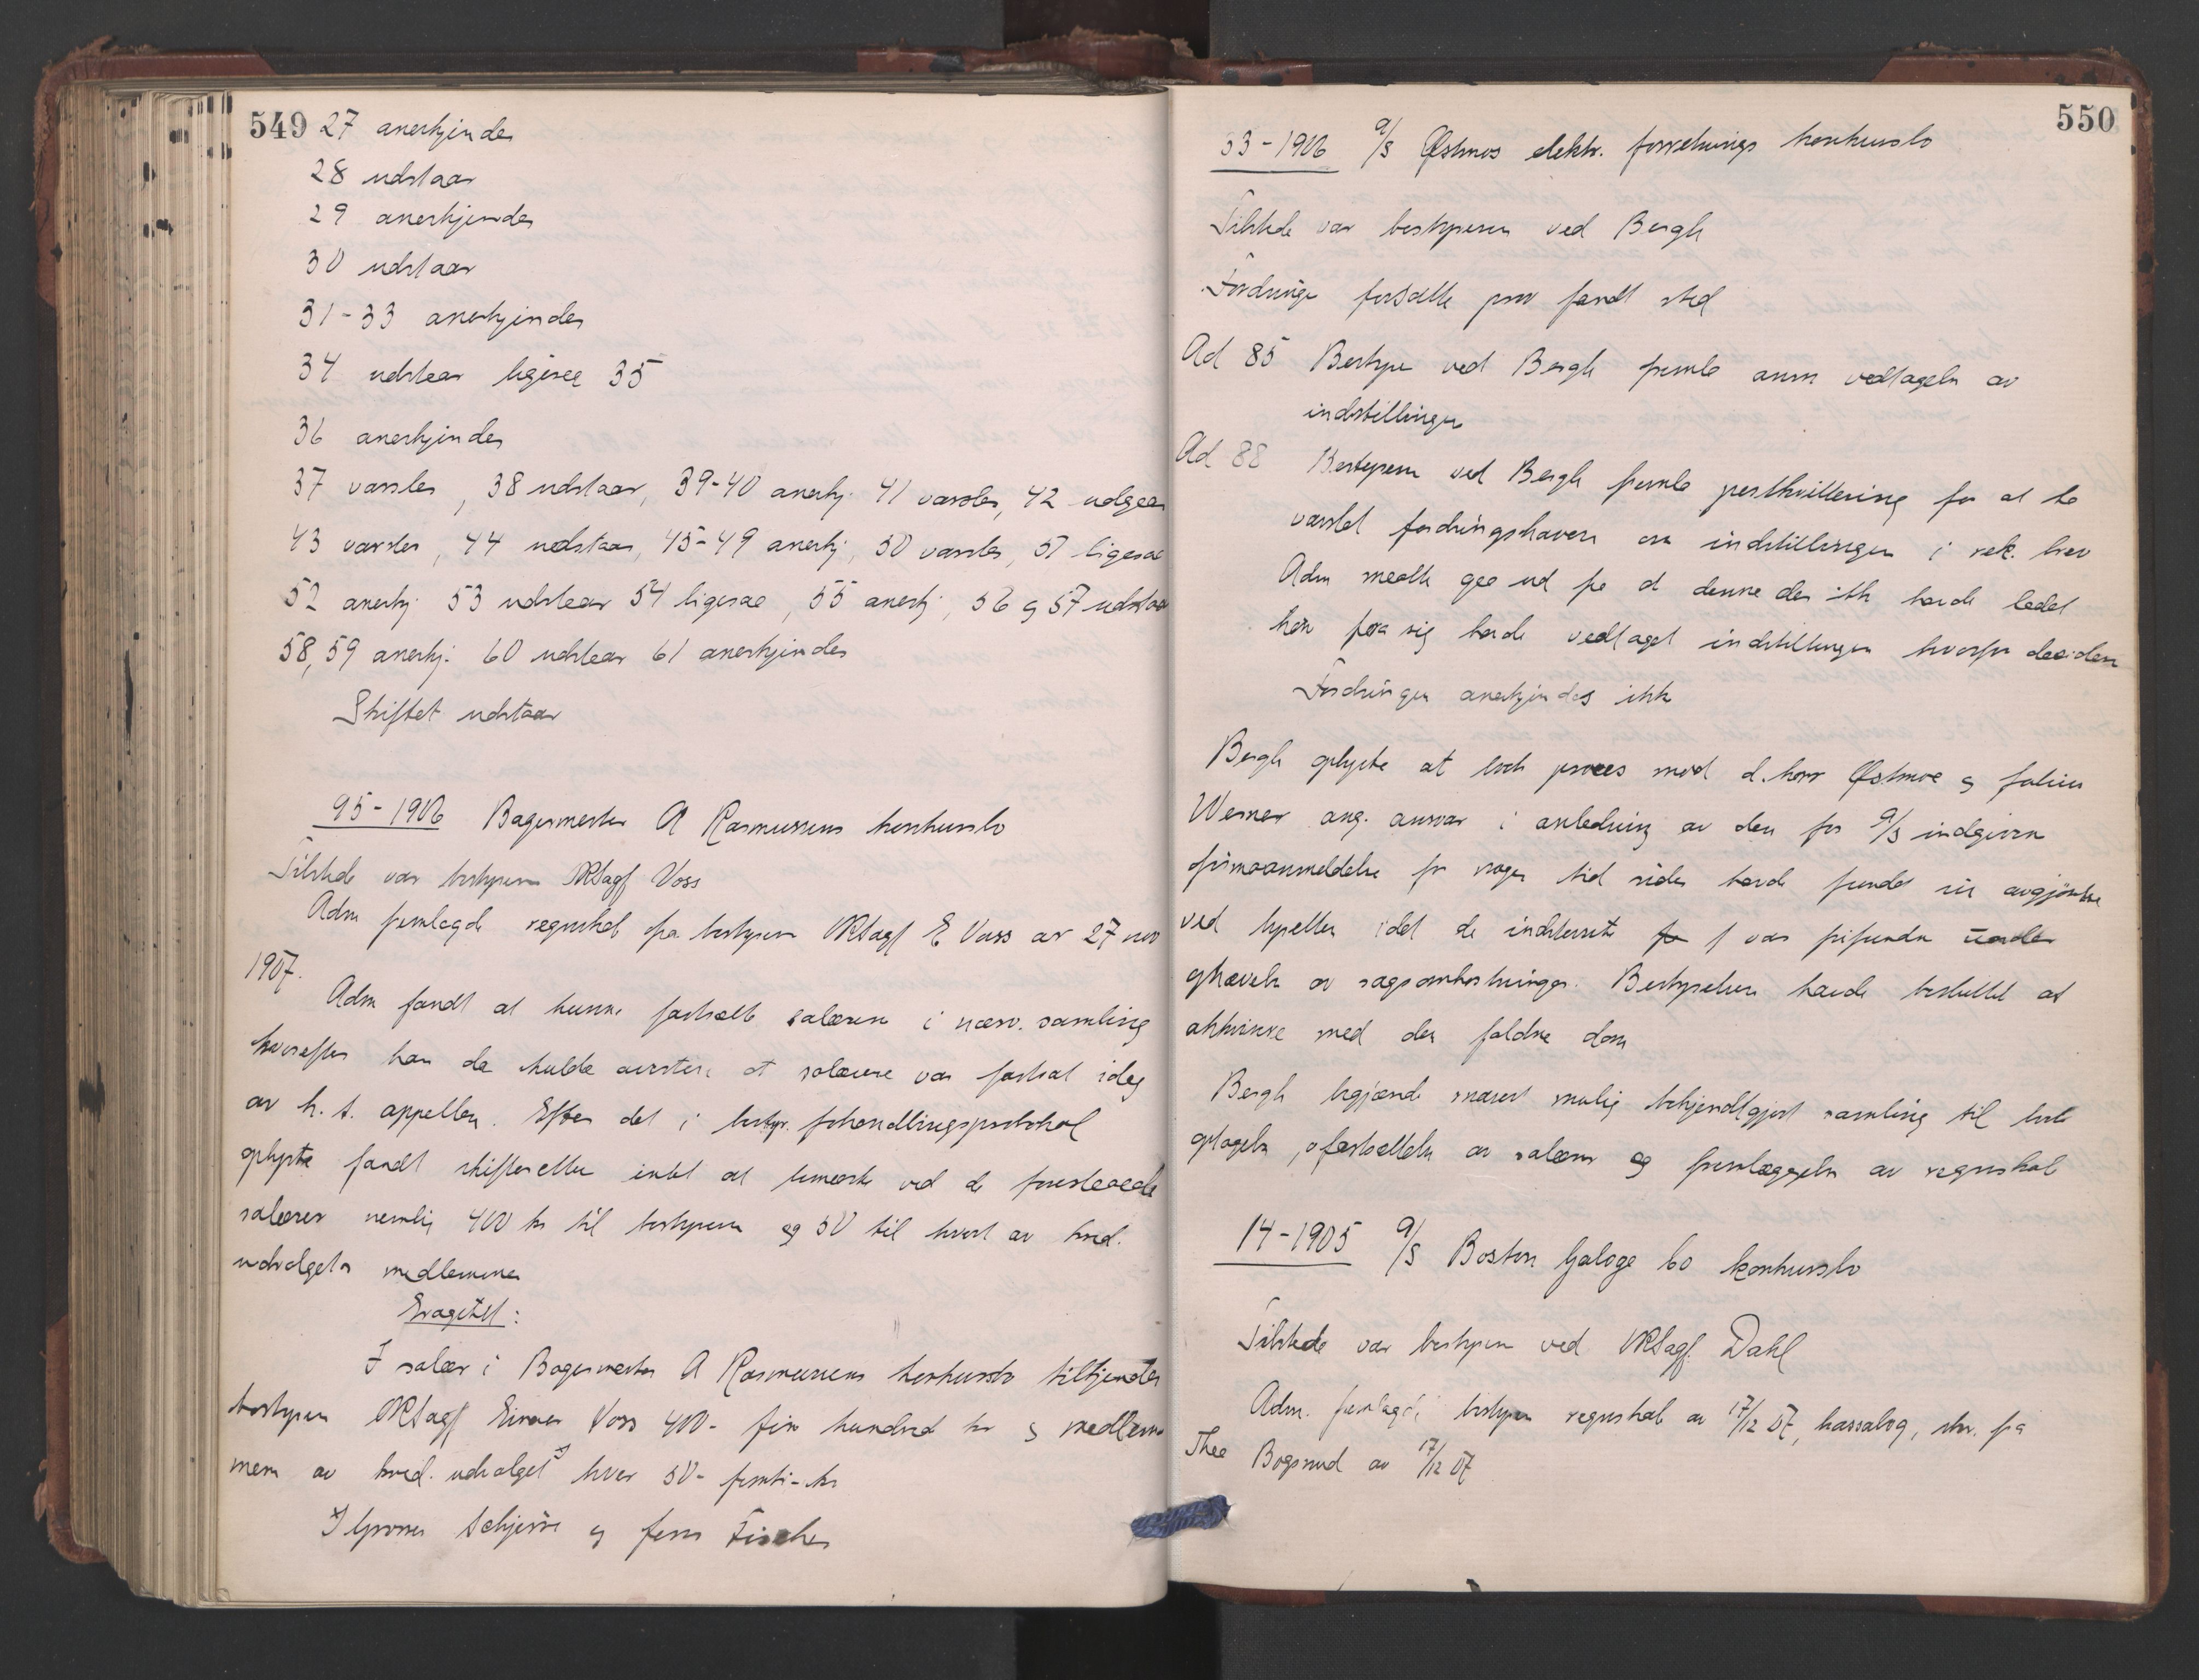 549 27 anerkjendes
28 udstaar
29 anerkjendes
30 udstaar
31-33 anerkjendes
34 udstaar ligesaa 35
36 anerkjendes
37 varsles, 38 udstaar, 39-40 anerkj. 41 varsles, 42 udgaar
43 varsles, 44 udstaar, 45-49 anerkj, 50 varsles, 51 ligesaa
52 anerkj. 53 udstaar 54 ligesaa, 55 anerkj, 56 og 57 udstaar
58, 59 anerkj. 60 udstaar 61 anerkjendes
Skiftet udstaar
95-1906 Bagermester A Rasmussens konkursbo
Tilstede var bestyreren ORSagf Voss
Adm fremlagde regnskab fra bestyreren ORSagf E Voss av 27 nov
1907.
Adm fandt at kunne fastsætte salærene i nærv. samling
hvorefter han da skulde avertere at salærene var fastsat idag
av h. t. appellen. Efter det i bestyr. forhandlingsprotokol
oplyste fandt skifteretten intet at bemærke ved de foreslaaede
salærer nemlig 400 kr til bestyreren og 50 til hvert av kred.
udvalgets medlemmer
Eragtet:
I salær i Bagermester A Rasmussens konkursbo tilkjendes
bestyrer ORSagf Einar Voss 400- fire hundred kr og medlem-
mem av kred. udvalget hver 50- femti- kr
Grosser Schjerve og Jens Fischer
550
33-1906 A/S Østmos elektr. forretnings konkursbo
Tilstede var bestyreren ved Bergh
Fordringe forsatte prøv fandt sted
Ad 85 Bestyr ved Bergh freml anm vedtagelse av
indstillingen
Ad 88 Bestyreren ved Bergh freml postkvittering for at ha
varslet fordringshaveren om indstillingen i rek. brev
Adm maatte gaa ud fra at denne der ikke havde ladet
høre fra sig havde vedtaget indstillingen hvorfor
Fordringen anerkjendes ikke
Bergh oplyste at boets proces mod d.herr Østmoe og
Werner ang. ansvar i anledning av den for A/S indgivne
firmaanmeldelse for nogen tid siden havde fundet sin avgjørelse
ved byretten idet de indstevnte var frifundne
ophævelse av sagsomkostninger. Bestyrelsen havde besluttet at
akkvisere med den faldne dom
Bergh begjærede snarest mulig bekjendtgjort samling til bets
optagelse, fastsættelse av salærer og fremlæggelse av regnskab
14-1905 A/S Boston Galoge Co konkursbo
Tilstede var bestyren ved ORSagf. Dahl
Adm. fremlagde bestyren regnskab av 17/12 07, kassabog, skr. fra
Thee Bogsrud av 17/12 07